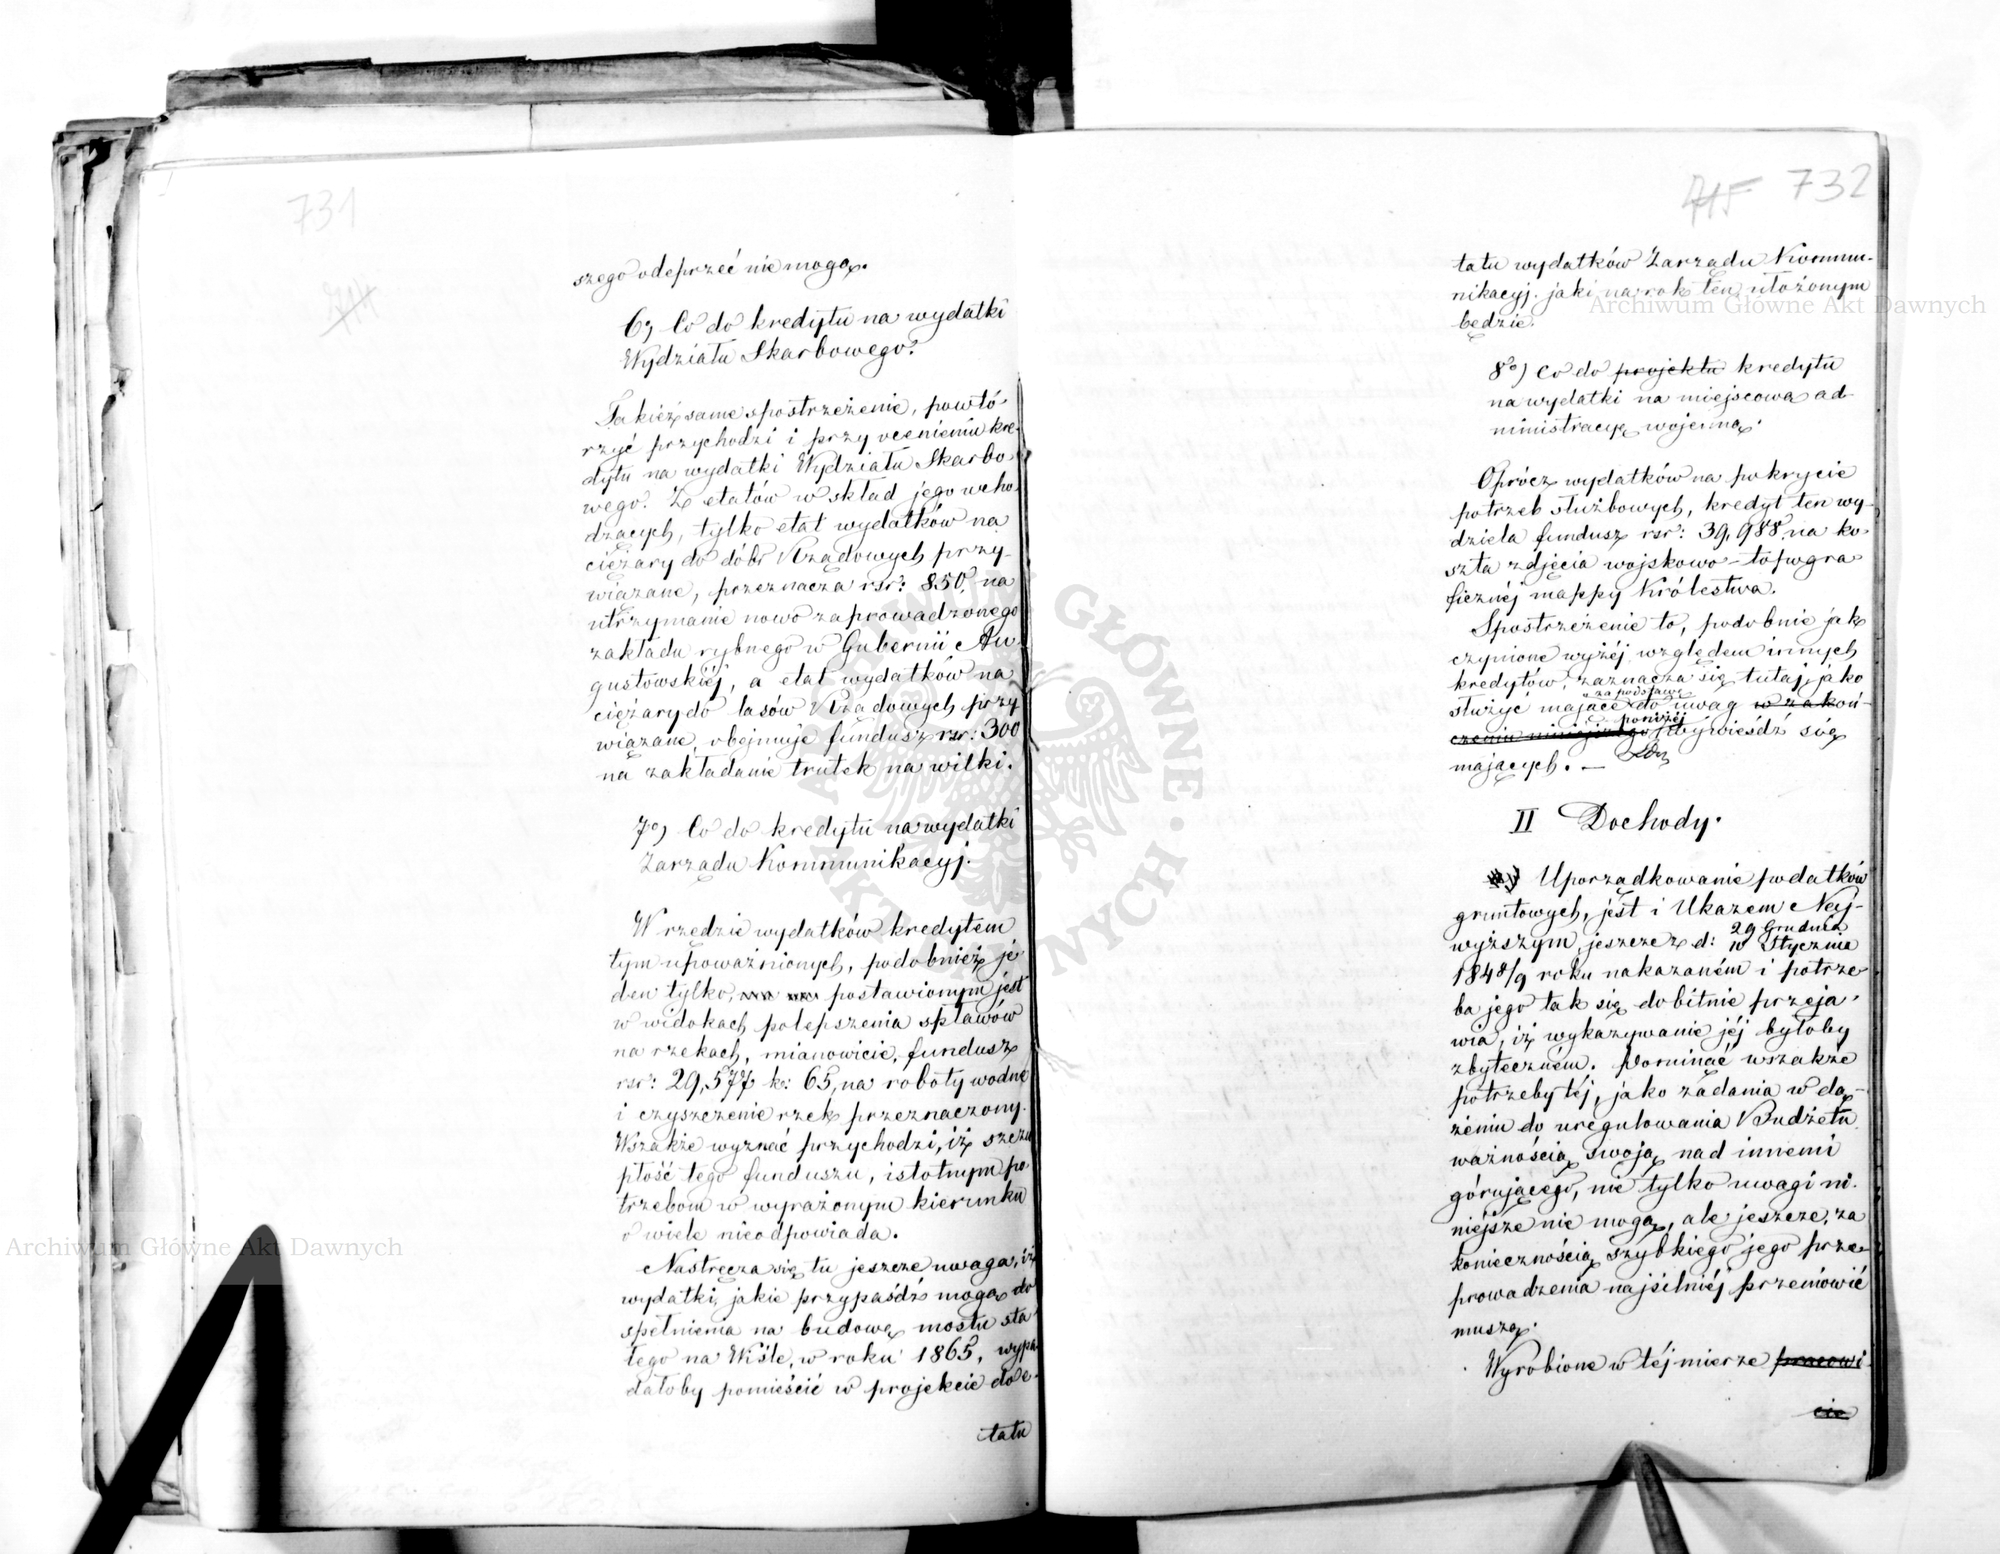 731
714
szego odeprzeć nie mogą.
6, Co do kredytu na wydatki
Wydziału Skarbowego.
Takież same spostrzeżenie, powtó-
rzyć przychodzi i przy ocenieniu kre-
dytu na wydatki Wydziału Skarbo-
wego. Z etatów w skład jego wcho-
dzących, tylko etat wydatków na
ciężary do dóbr Rządowych przy-
wiązane, przeznacza rsr: 850, na
utrzymanie nowo zaprowadzonego
zakładu rybnego w Gubernii Au-
gustowskiéj, a etat wydatków na
ciężary do lasów Rządowych przy
wiązane, obejmuje fundusz rsr: 300
na zakładanie trutek na wilki.
7o, Co do kredytu na wydatki
Zarządu Kommunikacyj.
W rzędzie wydatków kredytem
tym upoważnionych, podobnież je-
den tylko, postawionym jest
w widokach polepszenia spławów
na rzekach, mianowicie, fundusz
rsr: 29,577 k: 65, na roboty wodne
i czyszczenie rzek przeznaczony.
Wszakże wyznać przychodzi, iż szczu
płość tego funduszu, istotnym po-
trzebom w wyrażonym kierunku
o wiele nieodpowiada.
Nastręcza się tu jeszcze uwaga, iż
wydatki, jakie przypaśdź mogą do
spełnienia na budowę mostu sta-
łego na Wiśle, w roku 1865, wypa
dałoby pomieścić w projekcie do e-
tatu
715 732
tatu wydatków Zarządu Kommu-
nikacyj. jaki na rok ten ułożonym
będzie.
8o) Co do projektu kredytu
na wydatki na miejscową ad-
ministracyę wojenną.
Oprócz wydatków na pokrycie
potrzeb służbowych, kredyt ten wy-
dziela fundusz rsr: 39,988, na ko-
szta zdjęcia wojskowo-topogra-
ficznéj mappy Królestwa.
Spostrzeżenie to, podobnie jak
czynione wyżéj, względem innych
kredytów, zaznacza się tutaj, jako
za podstawę
służyć mające do uwag w zakoń-
poniżéj
czeniu niniejszego wywieśdź się
mających. —
II Dochody.
Uporządkowanie podatków
gruntowych, jest i Ukazem Naj-
29 Grudnia
wyższym, jeszcze z d: 10 Stycznia
1848/9 roku nakazaném i potrze-
ba jego tak się dobitnie przeja-
wia, iż wykazywanie jéj byłoby
zbyteczném. Pominąć wszakże
potrzeby téj, jako zadania w dą-
żeniu do uregulowania Budżetu
ważnością swoją nad innemi
górującego, nie tylko uwagi ni-
niejsze nie mogą, ale jeszcze, za
koniecznością szybkiego jego prze-
prowadzenia najsilniéj przemówić
muszą.
Wyrobione w téj mierze pracowi-
cie
Archiwum Główne Akt Dawnych
Archiwum Główne Akt Dawnych
ARCHIWUM GŁÓWNE · AKT DAWNYCH ·